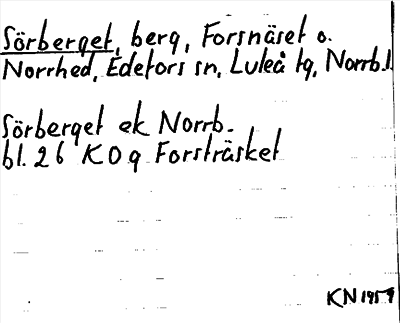 Sörberget, berg, Forsnäset o.
Norrhed, Edefors sn, Luleå tg, Norrb.l.
Sörberget ek Norrb.
bl. 26 KO q Forsträsket
KN 1959